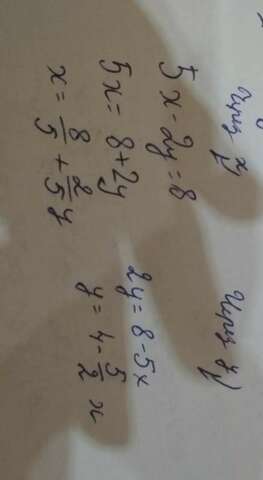 через x
5x - 2y = 8
5x = 8 + 2y
x = 8/5 + 2/5 y
через y
2y = 8 - 5x
y = 4 - 5/2 x